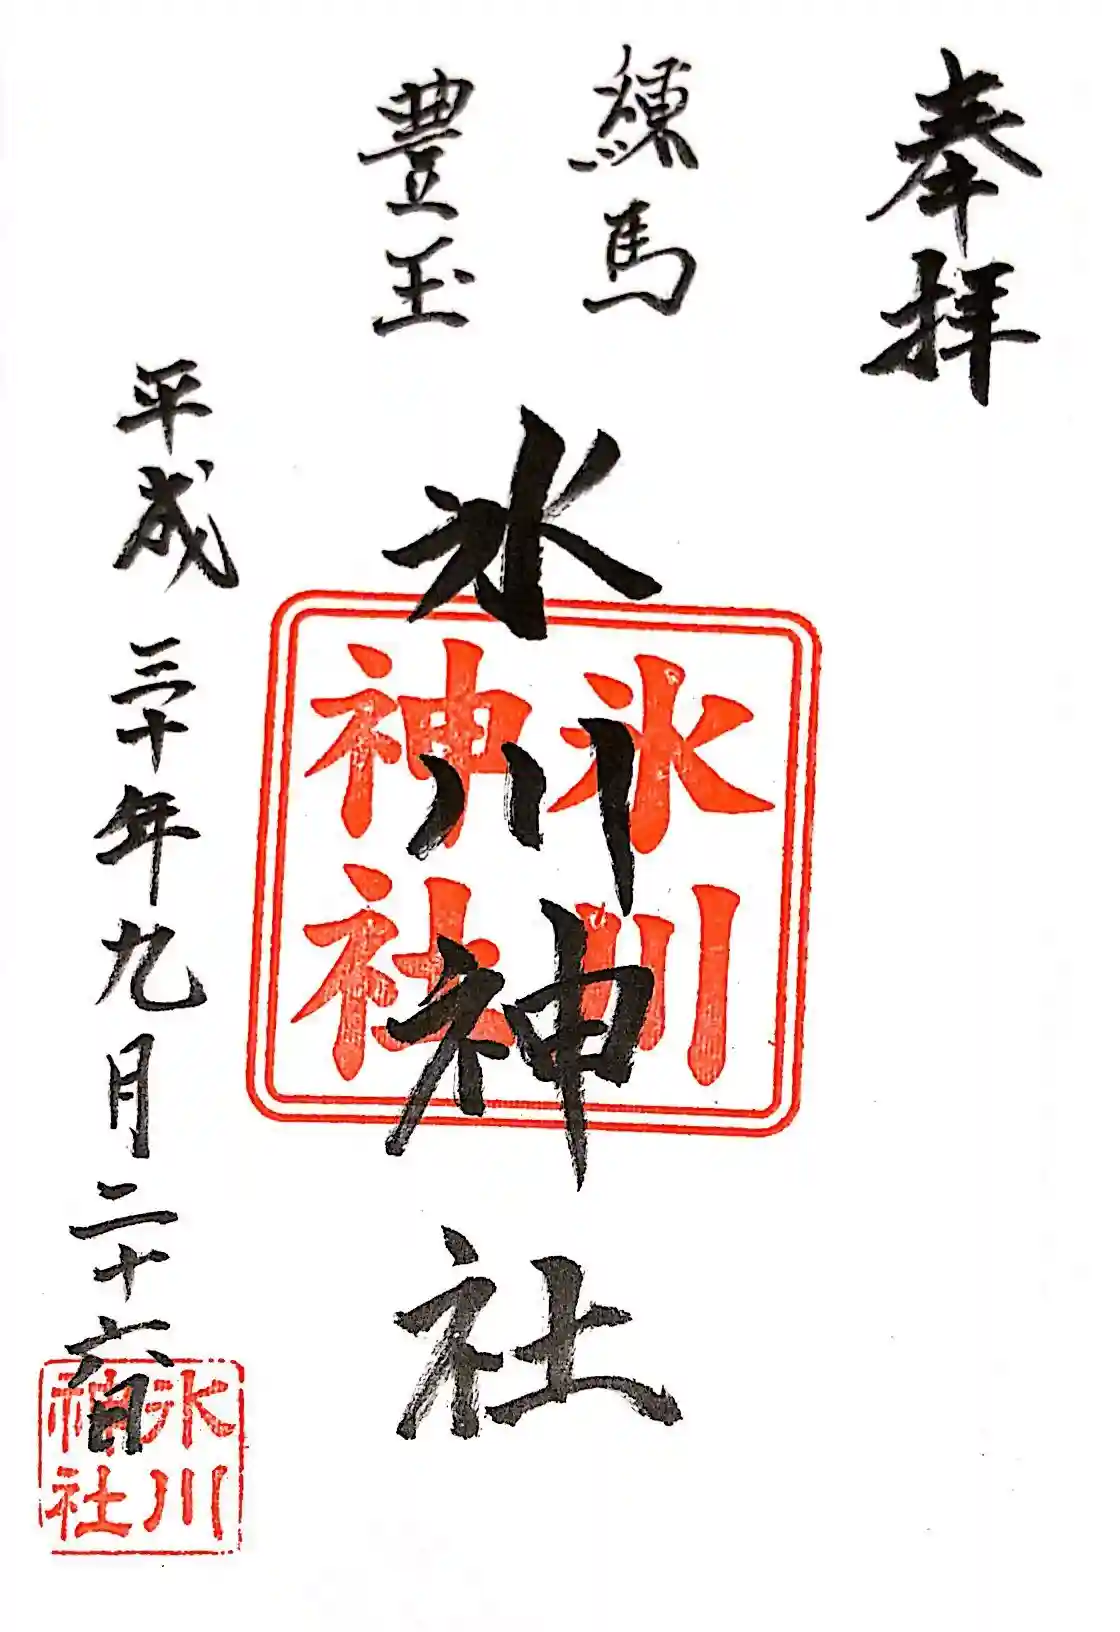 奉拝
練馬
豊玉
氷川神社
平成三十年九月二十六日
氷川
神社
氷川
神社